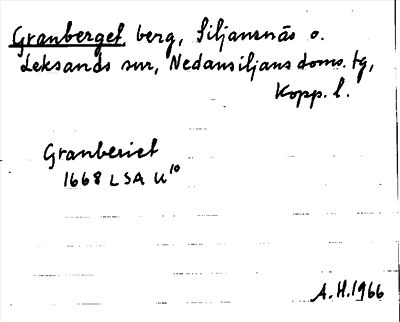 Granberget, berg, Siljansnäs o.
Leksands snr, Nedansiljans doms. tg,
Kopp. l.
Granberiet
1668 LSA U¹⁰
A.H. 1966